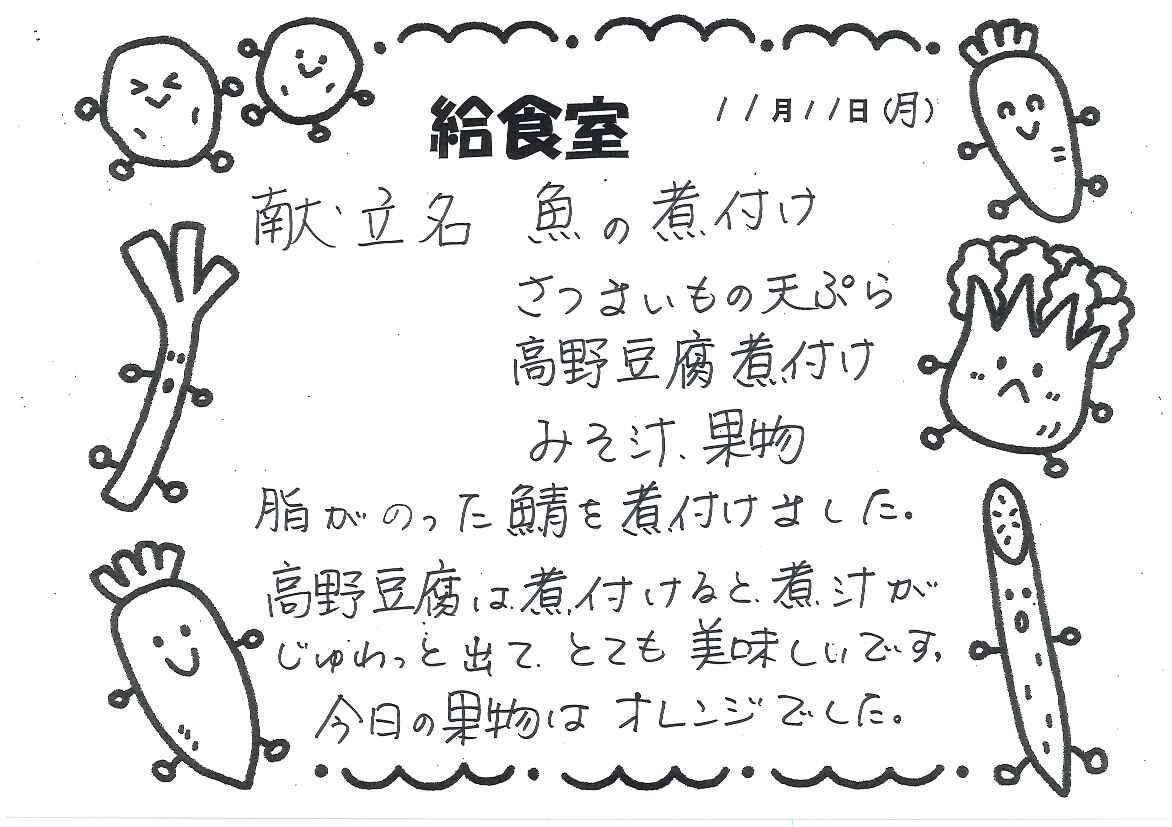 給食室 11月11日(月)
献立名 魚の煮付け
さつまいもの天ぷら
高野豆腐煮付け
みそ汁、果物
脂がのった鯖を煮付けました。
高野豆腐は煮付けると、煮汁が
じゅわっと出て、とても美味しいです。
今日の果物はオレンジでした。